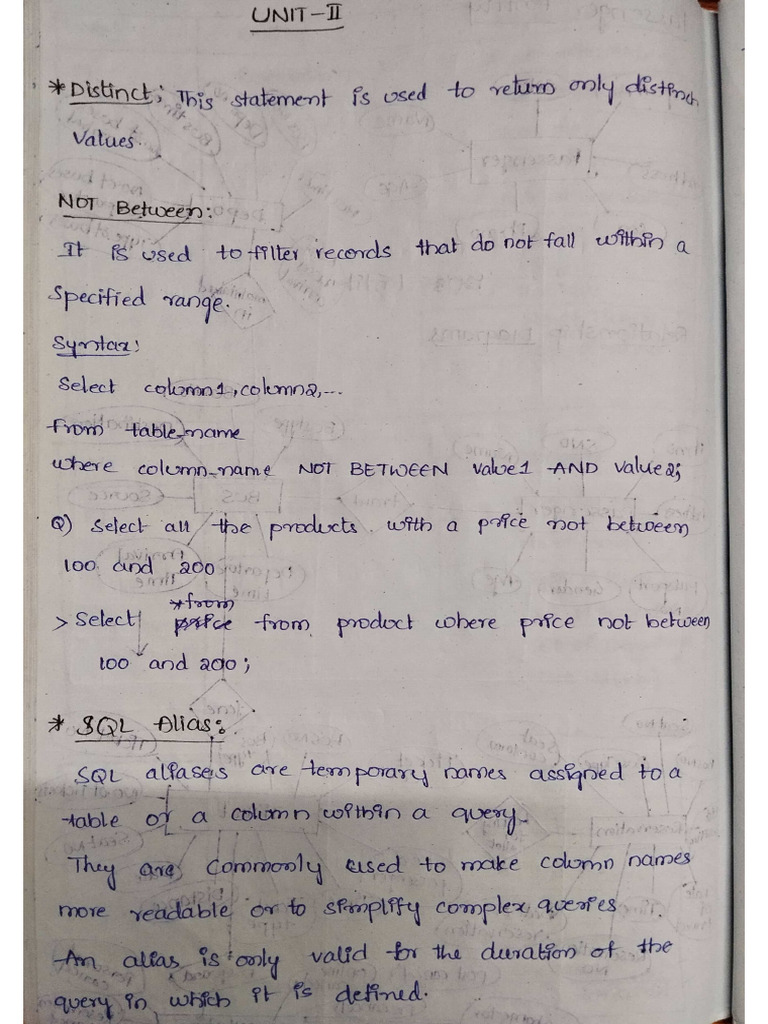 UNIT-II
* Distinct; This statement is used to return only distinct
values.
NOT Between:
It is used to filter records that do not fall within a
specified range.
Syntax:
Select column1, column2,...
from table_name
where column_name NOT BETWEEN value1 AND value2;
Q) Select all the products with a price not between
100 and 200
*from
> Select price from product where price not between
100 and 200;
* SQL Alias:
SQL aliases are temporary names assigned to a
table or a column within a query.
They are commonly used to make column names
more readable or to simplify complex queries
An alias is only valid for the duration of the
query in which it is defined.